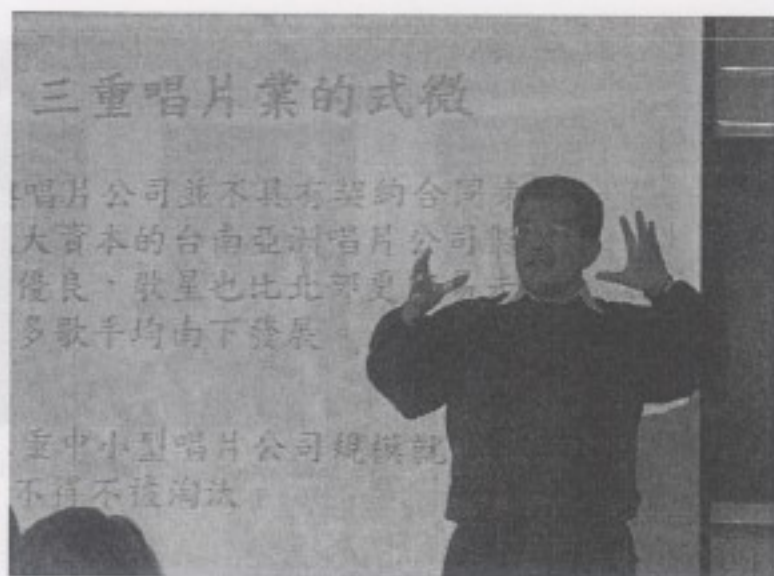 三重唱片業的式微
唱片公司並不具有契約合同
大資本的台南亞洲唱片公司
優良,歌星也比北部更
多歌手均南下發展。
重中小型唱片公司規模就
不得不被淘汰